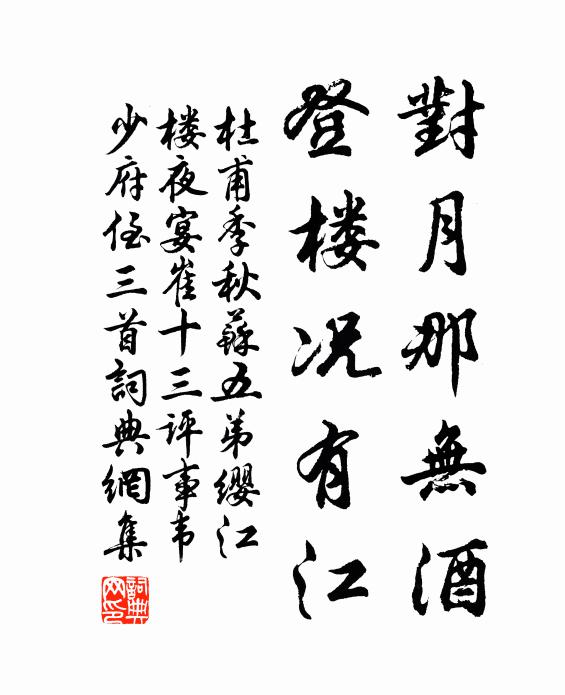 對月那無酒
登楼况有江
杜甫季秋蘇五弟缨江
楼夜宴崔十三评事韦
少府侄三首詞典網集
詞典
网印